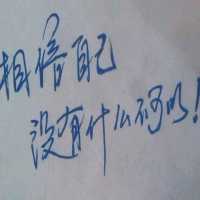 相信自己
没有什么不可以!